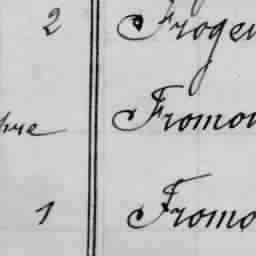 2 Froger
bre Fromon
1 Fromo